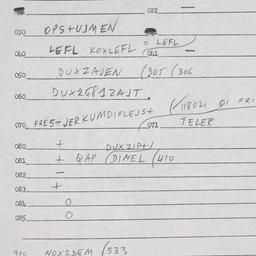 022
030 OPS+UJMEN
040 LEFL KOXLEFL = LEFL
042
050 DUXZAJEN (305 (306
060 DUX2681ZAJT.
070 FRES=JERKUMDIFLEJS+ (118021 01 FRI
072 TELER
080 + DUXZIP+/
081 + QAP (DIMEL (410
082 -
083 +
084 0
085 0
900 NOX2DEM (533